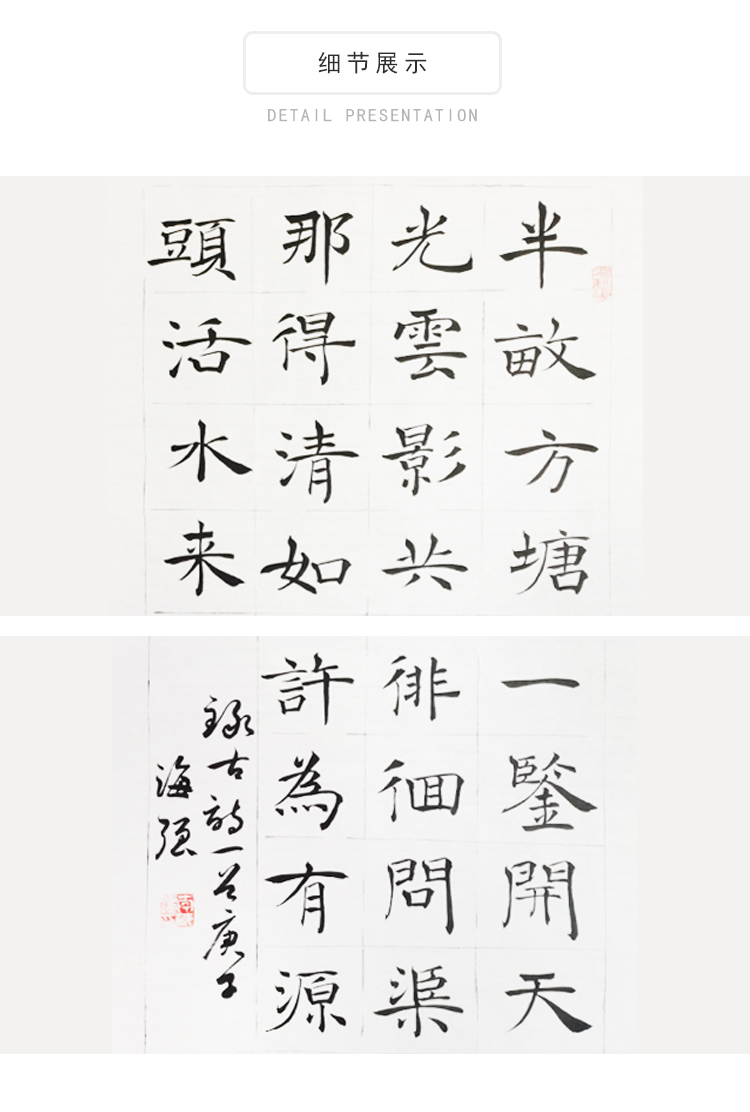 细节展示
DETAIL PRESENTATION
半畝方塘
光雲影共
那得清如
頭活水来
一鑒開天
徘徊問渠
許為有源
錄古詩一首庚子
海强